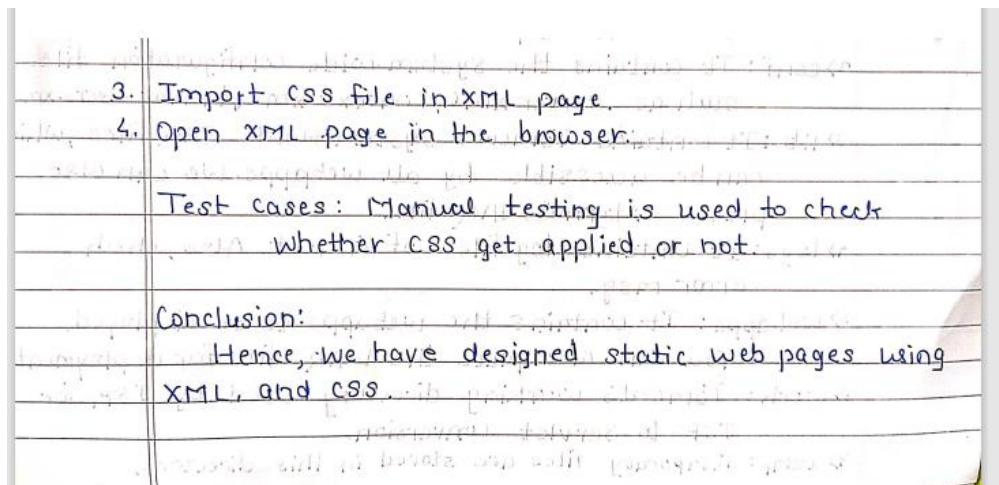 3. Import css file in XML page.
4. Open XML page in the browser.
Test cases : Manual testing is used to check
whether css get applied or not.
Conclusion:
Hence, we have designed static web pages using
XML, and css.